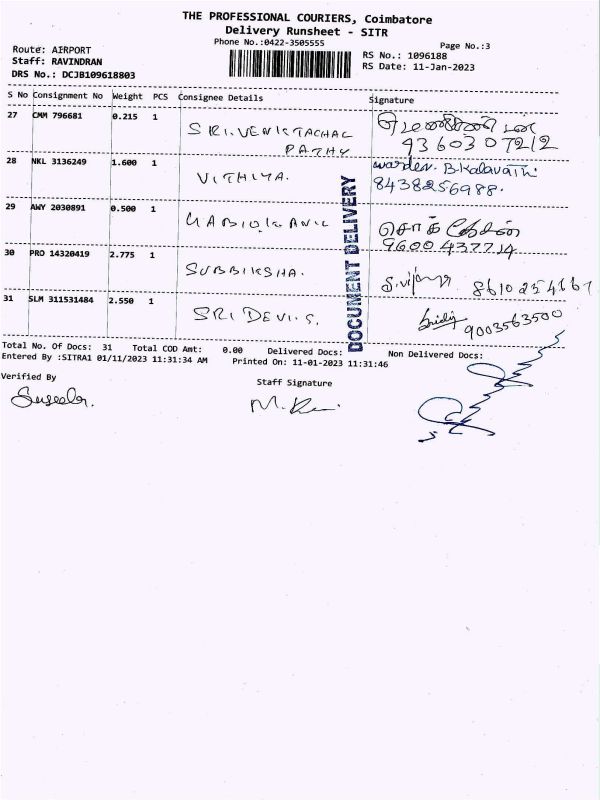 THE PROFESSIONAL COURIERS, Coimbatore
Delivery Runsheet - SITR
Phone No.:0422-3505555
Page No.:3
Route: AIRPORT
Staff: RAVINDRAN
DRS No.: DCJB109618803
RS No.: 1096188
RS Date: 11-Jan-2023
S No Consignment No Weight PCS Consignee Details Signature
27 CMM 796681 0.215 1 SRI.VENKTACHAL
PATHY
9360307212
28 NKL 3136249 1.600 1 VITHIYA. warden. B.Kalavathi
8438256988.
29 AWY 2030891 0.500 1
9600437714
30 PRO 14320419 2.775 1 SUBBIKSHA. S.vijaya 8610254667
31 SLM 311531484 2.550 1 SRI DEVI.S. 9003563500
DOCUMENT DELIVERY
Total No. Of Docs: 31 Total COD Amt: 0.00 Delivered Docs: Non Delivered Docs:
Entered By :SITRA1 01/11/2023 11:31:34 AM Printed On: 11-01-2023 11:31:46
Verified By
Staff Signature